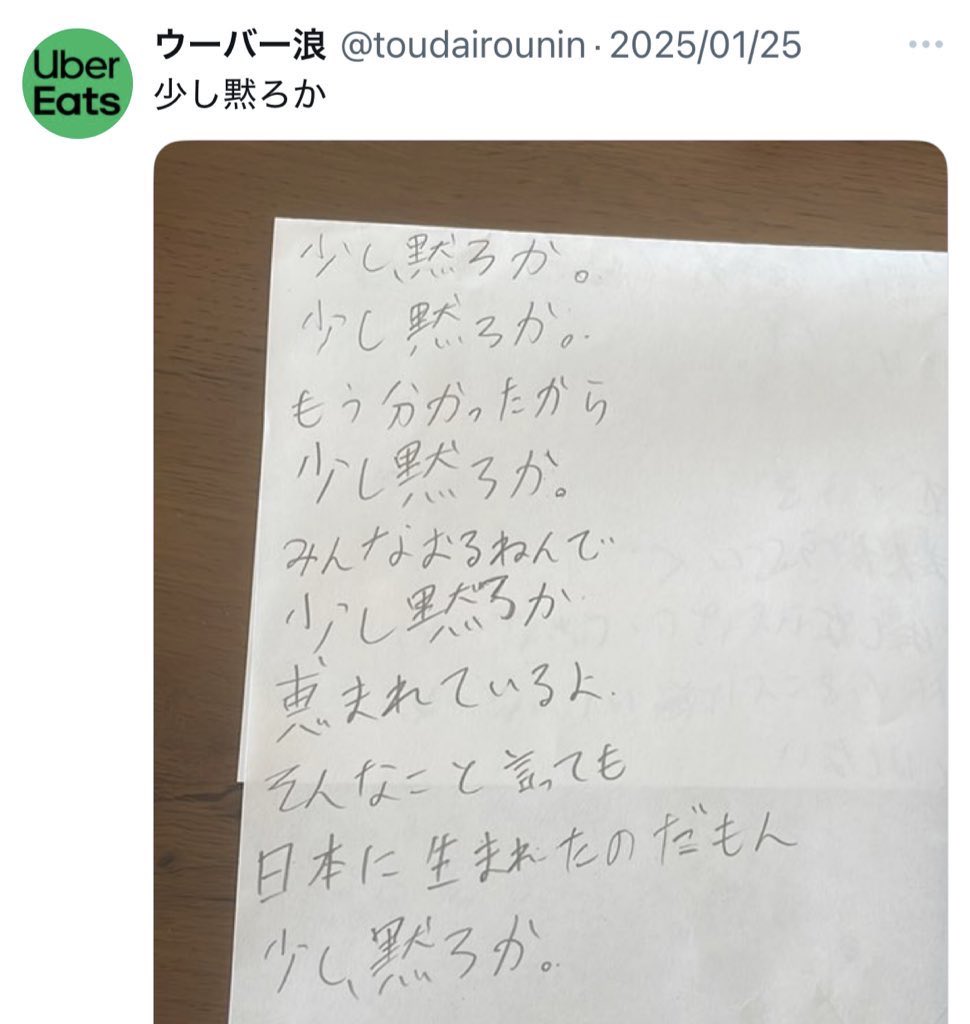 Uber
Eats
ウーバー浪 @toudairounin · 2025/01/25
少し黙ろか
少し黙ろか。
少し黙ろか。
もう分かったから
少し黙ろか。
みんなおるねんで
少し黙ろか
恵まれているよ
そんなこと言っても
日本に生まれたのだもん
少し黙ろか。